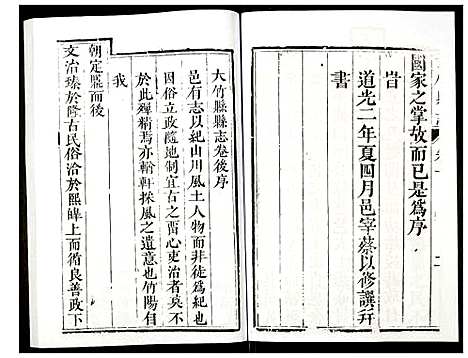 國家之掌故而已是爲序
旹
道光二年夏四月邑宰蔡以修譔幷
書
大竹縣縣志卷後序
邑有志以紀山川風土人物而非徒爲紀也
因俗立政隨地制宜古之留心吏治者莫不
於此殫精焉亦輶軒採風之遺意也竹陽自
我
朝定鼎而後
文治臻於隆古民俗洽於熙皥上而循良善政下